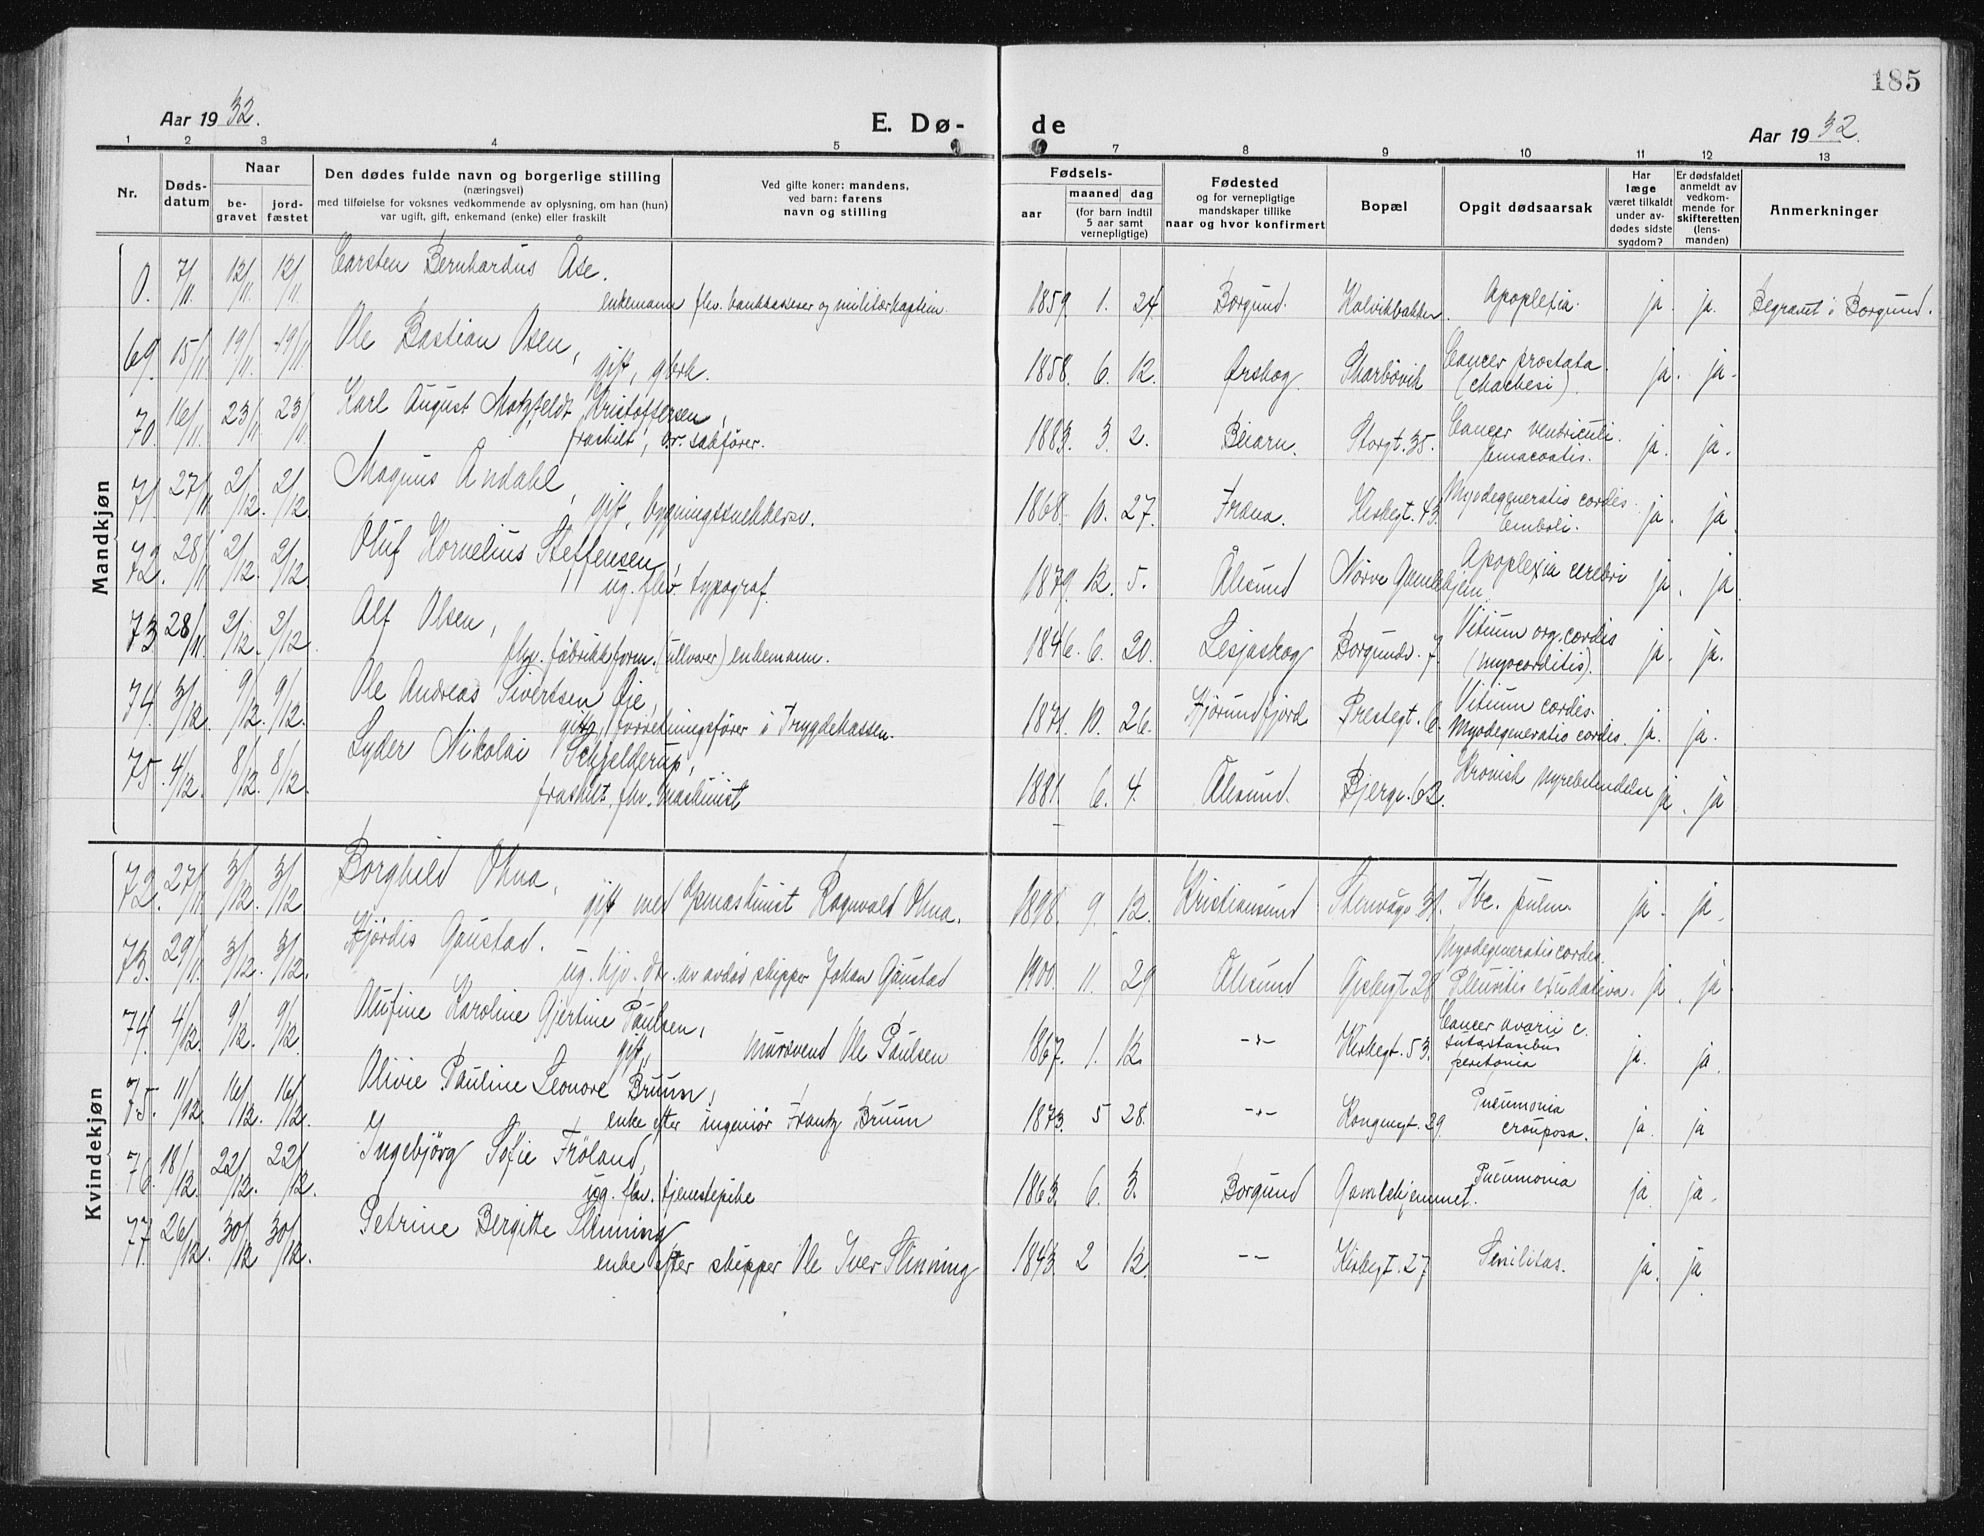 185
Aar 1932.
E. Dø-
de
Aar 1932.
1 2 3 4 5 7 8 9 10 11 12 13
Nr.
Døds-
datum
Naar
be-
gravet
jord-
fæstet
Den dødes fulde navn og borgerlige stilling
(næringsvei)
med tilføielse for voksnes vedkommende av oplysning, om han (hun)
var ugift, gift, enkemand (enke) eller fraskilt
Ved gifte koner: mandens,
ved barn: farens
navn og stilling
Fødsels-
aar
maaned
dag
(for barn indtil
5 aar samt
vernepligtige)
Fødested
og for vernepligtige
mandskaper tillike
naar og hvor konfirmert
Bopæl
Opgit dødsaarsak
Har
læge
været tilkaldt
under av-
dødes sidste
sygdom?
Er dødsfaldet
anmeldt av
vedkom-
mende for
skifteretten
(lens-
manden)
Anmerkninger
Mandkjøn
0. 7/11. 12/11 12/11 Carsten Bernhardus Åse.
enkemann flv. bankkasserer og militærkaptein. 1859. 1. 24 Borgund. Kolvikbakken Apoplexia. ja. ja. Begravet i Borgund.
69. 15/11 19/11. 19/11 Ole Bastian Osen,
gift, gbrk. 1858. 6. 12. Ørskog Skarbøvik Cancer prostata.
(chachesi). ja. ja.
70. 16/11. 23/11 23/11. Karl August Motzfeldt Kristoffersen,
fraskilt, or. sakfører. 1883. 3. 2. Beiarn. Storgt. 35. Cancer ventriculi.
ja. ja.
71. 27/11 2/12. 2/12. Magnus Andahl,
gift, bygningssnekkersv. 1868. 10. 27. Fræna. Kirkegt. 43. Myodegeneratio cordis.
Emboli. ja. ja.
72. 28/11 2/12. 2/12. Oluf Kornelius Steffensen,
ug. flv. typograf. 1879. 12. 5. Ålesund Nørve Gamlehjem. Apoplexia cerebri ja. ja.
73 28/11. 2/12. 2/12. Alf Olsen,
flv. fabrikkform. (ullvarer) enkemann. 1846. 6. 20. Lesjaskog Borgundv. 7. Vitium org. cordis
(myocorditis). ja. ja.
74. 3/12. 9/12. 9/12. Ole Andreas Sivertsen Øie,
gift, forretningsfører i Trygdekassen. 1871. 10. 26. Hjørundfjord Prestegt. 6. Vitium cordis.
Myodegeneratio cordis. ja. ja.
75. 4/12. 8/12. 8/12. Lyder Nikolai Schjelderup,
fraskilt, flv. maskinist 1881. 6. 4. Ålesund. Bjergv. 62. Kronisk nyrebetendelse ja. ja
Kvindekjøn
72. 27/11 3/12. 3/12 Borghild Ohna,
gift med Ragnvald Ohna. 1898. 9. 12. Kristiansund Stenvågv. 31. Tbc. pulm. ja. ja.
73. 29/11. 3/12. 3/12. Hjördis Gaustad.
ug. hjv. dtr. av avdød skipper Johan Gaustad 1900. 11. 29 Ålesund Apotekergt. 28 Myodegeneratio cordis.
Pleuritis exudativa. ja. ja.
74. 4/12. 9/12. 9/12. Olufine Karoline Gjertine Paulsen,
gift, mursvend Ole Paulsen 1867. 1. 12. -"- Kirkegt. 53. Cancer ovarii c.
peritonia ja. ja.
75. 11/12. 16/12. 16/12. Olivie Pauline Leonore Bruun,
enke efter ingeniør Frantz Bruun 1873. 5 28. -"- Kongensgt. 29. Pneumonia
crouposa. ja. ja
76. 18/12. 22/12. 22/12. Ingebjörg Sofie Fröland,
ug. flv. tjenestepike 1863. 6. 3. Borgund Gamlehjemmet. Pneumonia ja ja.
77. 26/12. 30/12 30/12. Petrine Bergitte Slinning
enke efter skipper Ole Iver Slinning 1843. 2 12. -- Kirkegt. 27. Senilitas. ja. ja